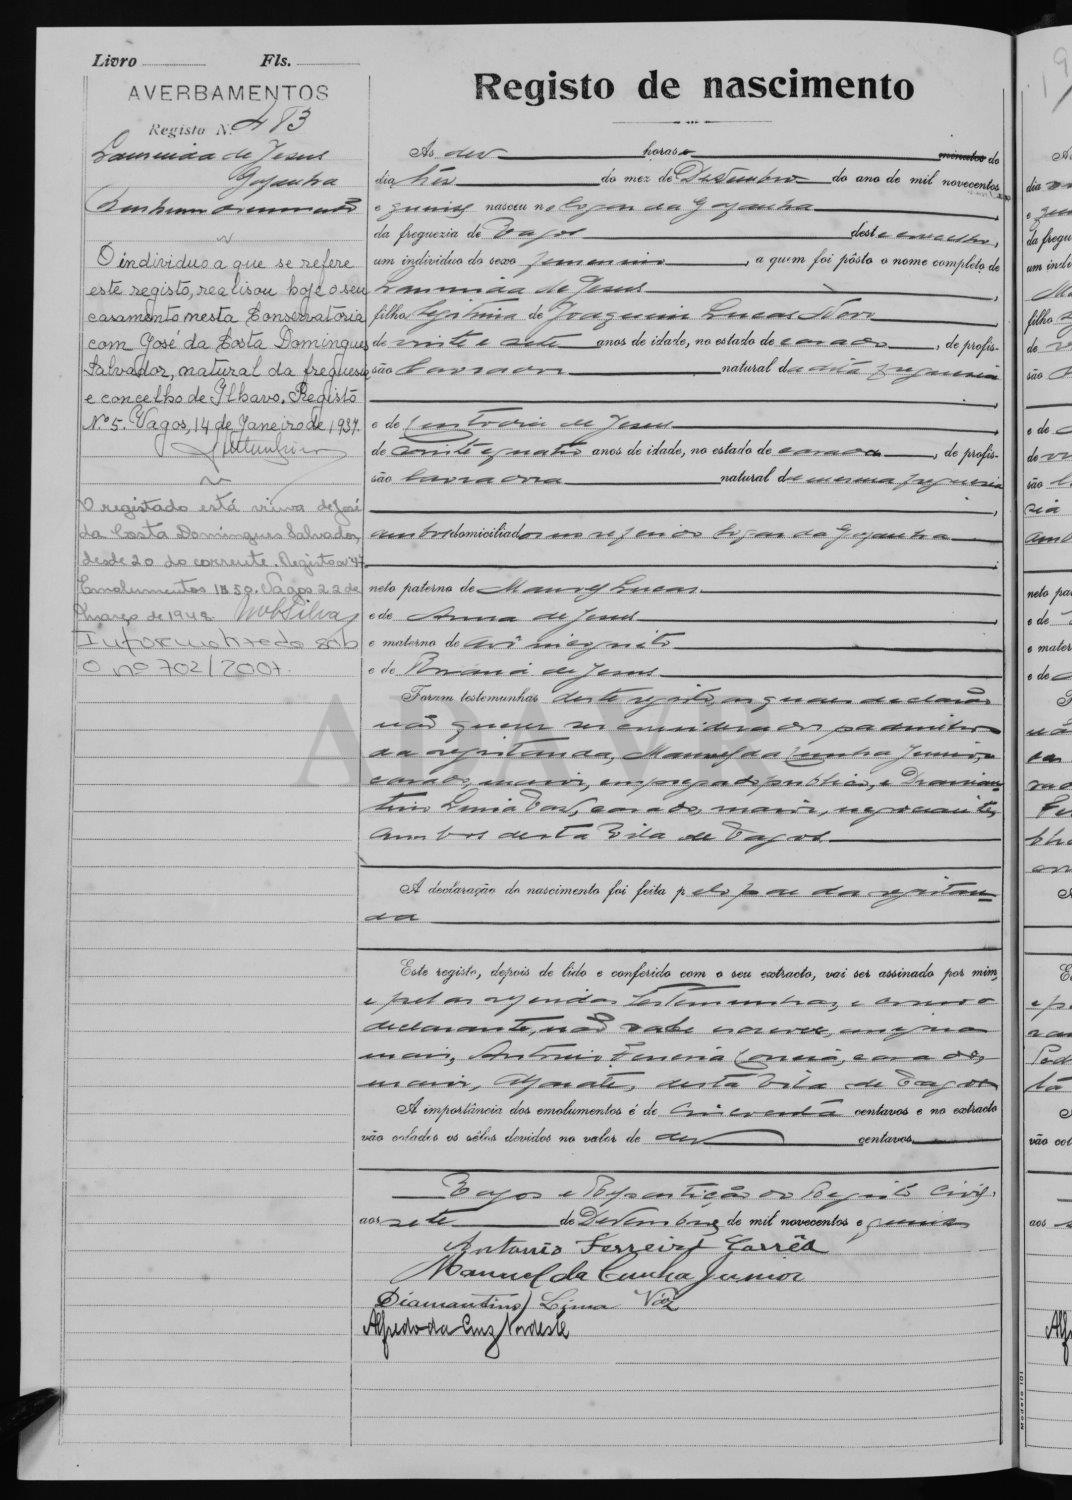 Livro Fls.
AVERBAMENTOS
Registo N.º 483
Laurinda de Jesus
Gafanha
O individuo a que se refere
este registo, realisou hoje o seu
casamento nesta Conservatória
com José da Costa Domingues
Salvador, natural da freguesia
e concelho de Ilhavo. Registo
Nº 5. Vagos, 14 de Janeiro de 1937.
O registado está viuva de José
da Costa Domingues Salvador,
desde 20 do corrente. Registo nº 47
Emolumentos 1$50. Vagos 22 de
Março de 1948.
Informatizado sob
o nº 702/2007.
Registo de nascimento
Ás dez horas e minutos do
dia três do mez de Dezembro do ano de mil novecentos
e quinze nasceu no logar da Gafanha
da freguezia de Vagos deste concelho,
um individuo do sexo femenino, a quem foi pôsto o nome completo de
Laurinda de Jesus,
filho legitima de Joaquim Lucas Novo,
de vinte e sete anos de idade, no estado de casado, de profis-
são lavrador natural da dita freguesia
e de de Jesus,
de vinte e quatro anos de idade, no estado de casada, de profis-
são lavradora natural da mesma freguesia
ambos domiciliados no referido logar da Gafanha
neto paterno de Manuel Lucas
e de Anna de Jesus,
e materno de avô incognito
e de de Jesus
Foram testemunhas deste registo, as quaes declararão
não querer ser considerados padrinhos
da registanda, Manuel da Cunha Junior,
casado, maior, empregado publico, e Diaman-
tino Lima Vaz, casado, maior, negociante,
ambos desta Vila de Vagos
A declaração do nascimento foi feita pelo pae da registan-
da
Este registo, depois de lido e conferido com o seu extracto, vai ser assinado por mim,
e pelas referidas testemunhas, e como o
declarante, não sabe escrever, assigna
mais, Antonio Ferreira Corrêa, casado,
maior, desta Vila de Vagos
A importância dos emolumentos é de cincoenta centavos e no extracto
vão colados os sêlos devidos no valor de dez centavos
Vagos e Repartição do Registo Civil,
aos sete de Dezembro de mil novecentos e quinze
Antonio Ferreira Corrêa
Manuel da Cunha Junior
Diamantino Lima Vaz
Alfredo da Cruz Nordeste
Modelo 101